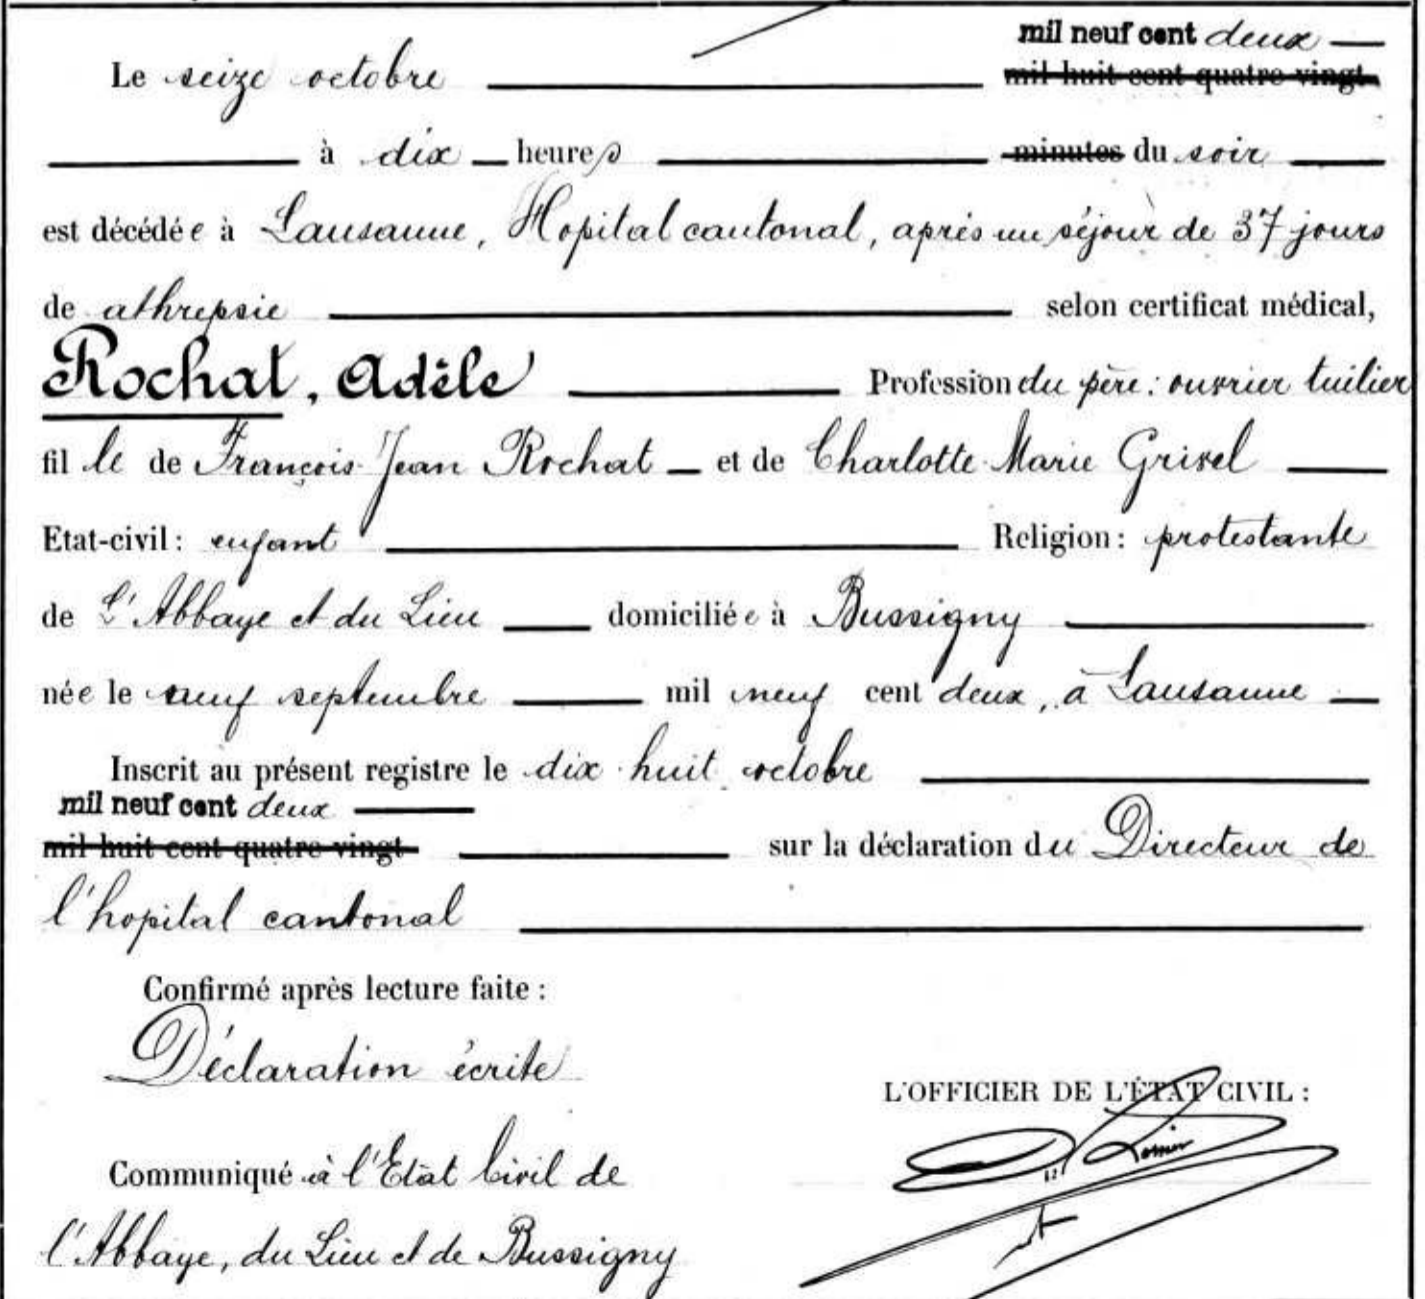 mil neuf cent deux
Le seize octobre mil huit cent quatre-vingt
à dix heures minutes du soir
est décédée à Lausanne, Hopital cantonal, après un séjour de 37 jours
de athrepsie selon certificat médical,
Rochat, Adèle Profession du père: ouvrier tuilier
fille de François Jean Rochat et de Charlotte Marie Grivel
Etat-civil: enfant Religion: protestante
de L'Abbaye et du Lieu domiciliée à Bussigny
née le neuf septembre mil neuf cent deux, à Lausanne
Inscrit au présent registre le dix huit octobre
mil neuf cent deux
mil huit cent quatre-vingt sur la déclaration du Directeur de
l'hopital cantonal
Confirmé après lecture faite:
Déclaration écrite
L'OFFICIER DE L'ÉTAT CIVIL:
Communiqué à l'Etat Civil de
l'Abbaye, du Lieu et de Bussigny